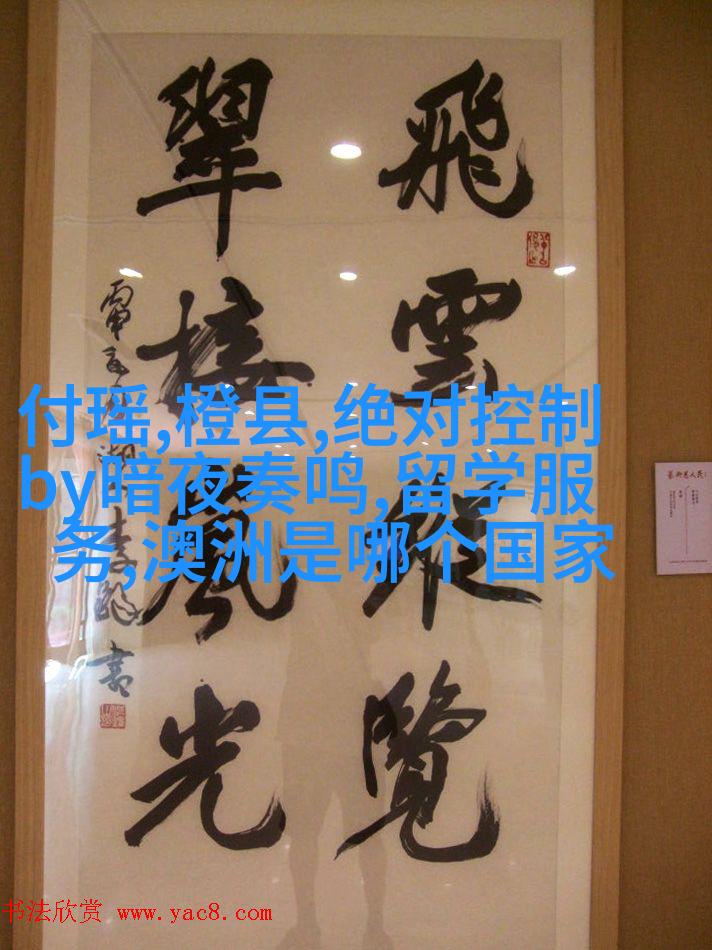 飛雲縱覽
翠接風光
付瑶,橙县,绝对控制
by暗夜奏鸣,留学服
务,澳洲是哪个国家
书法欣赏 www.yac8.com